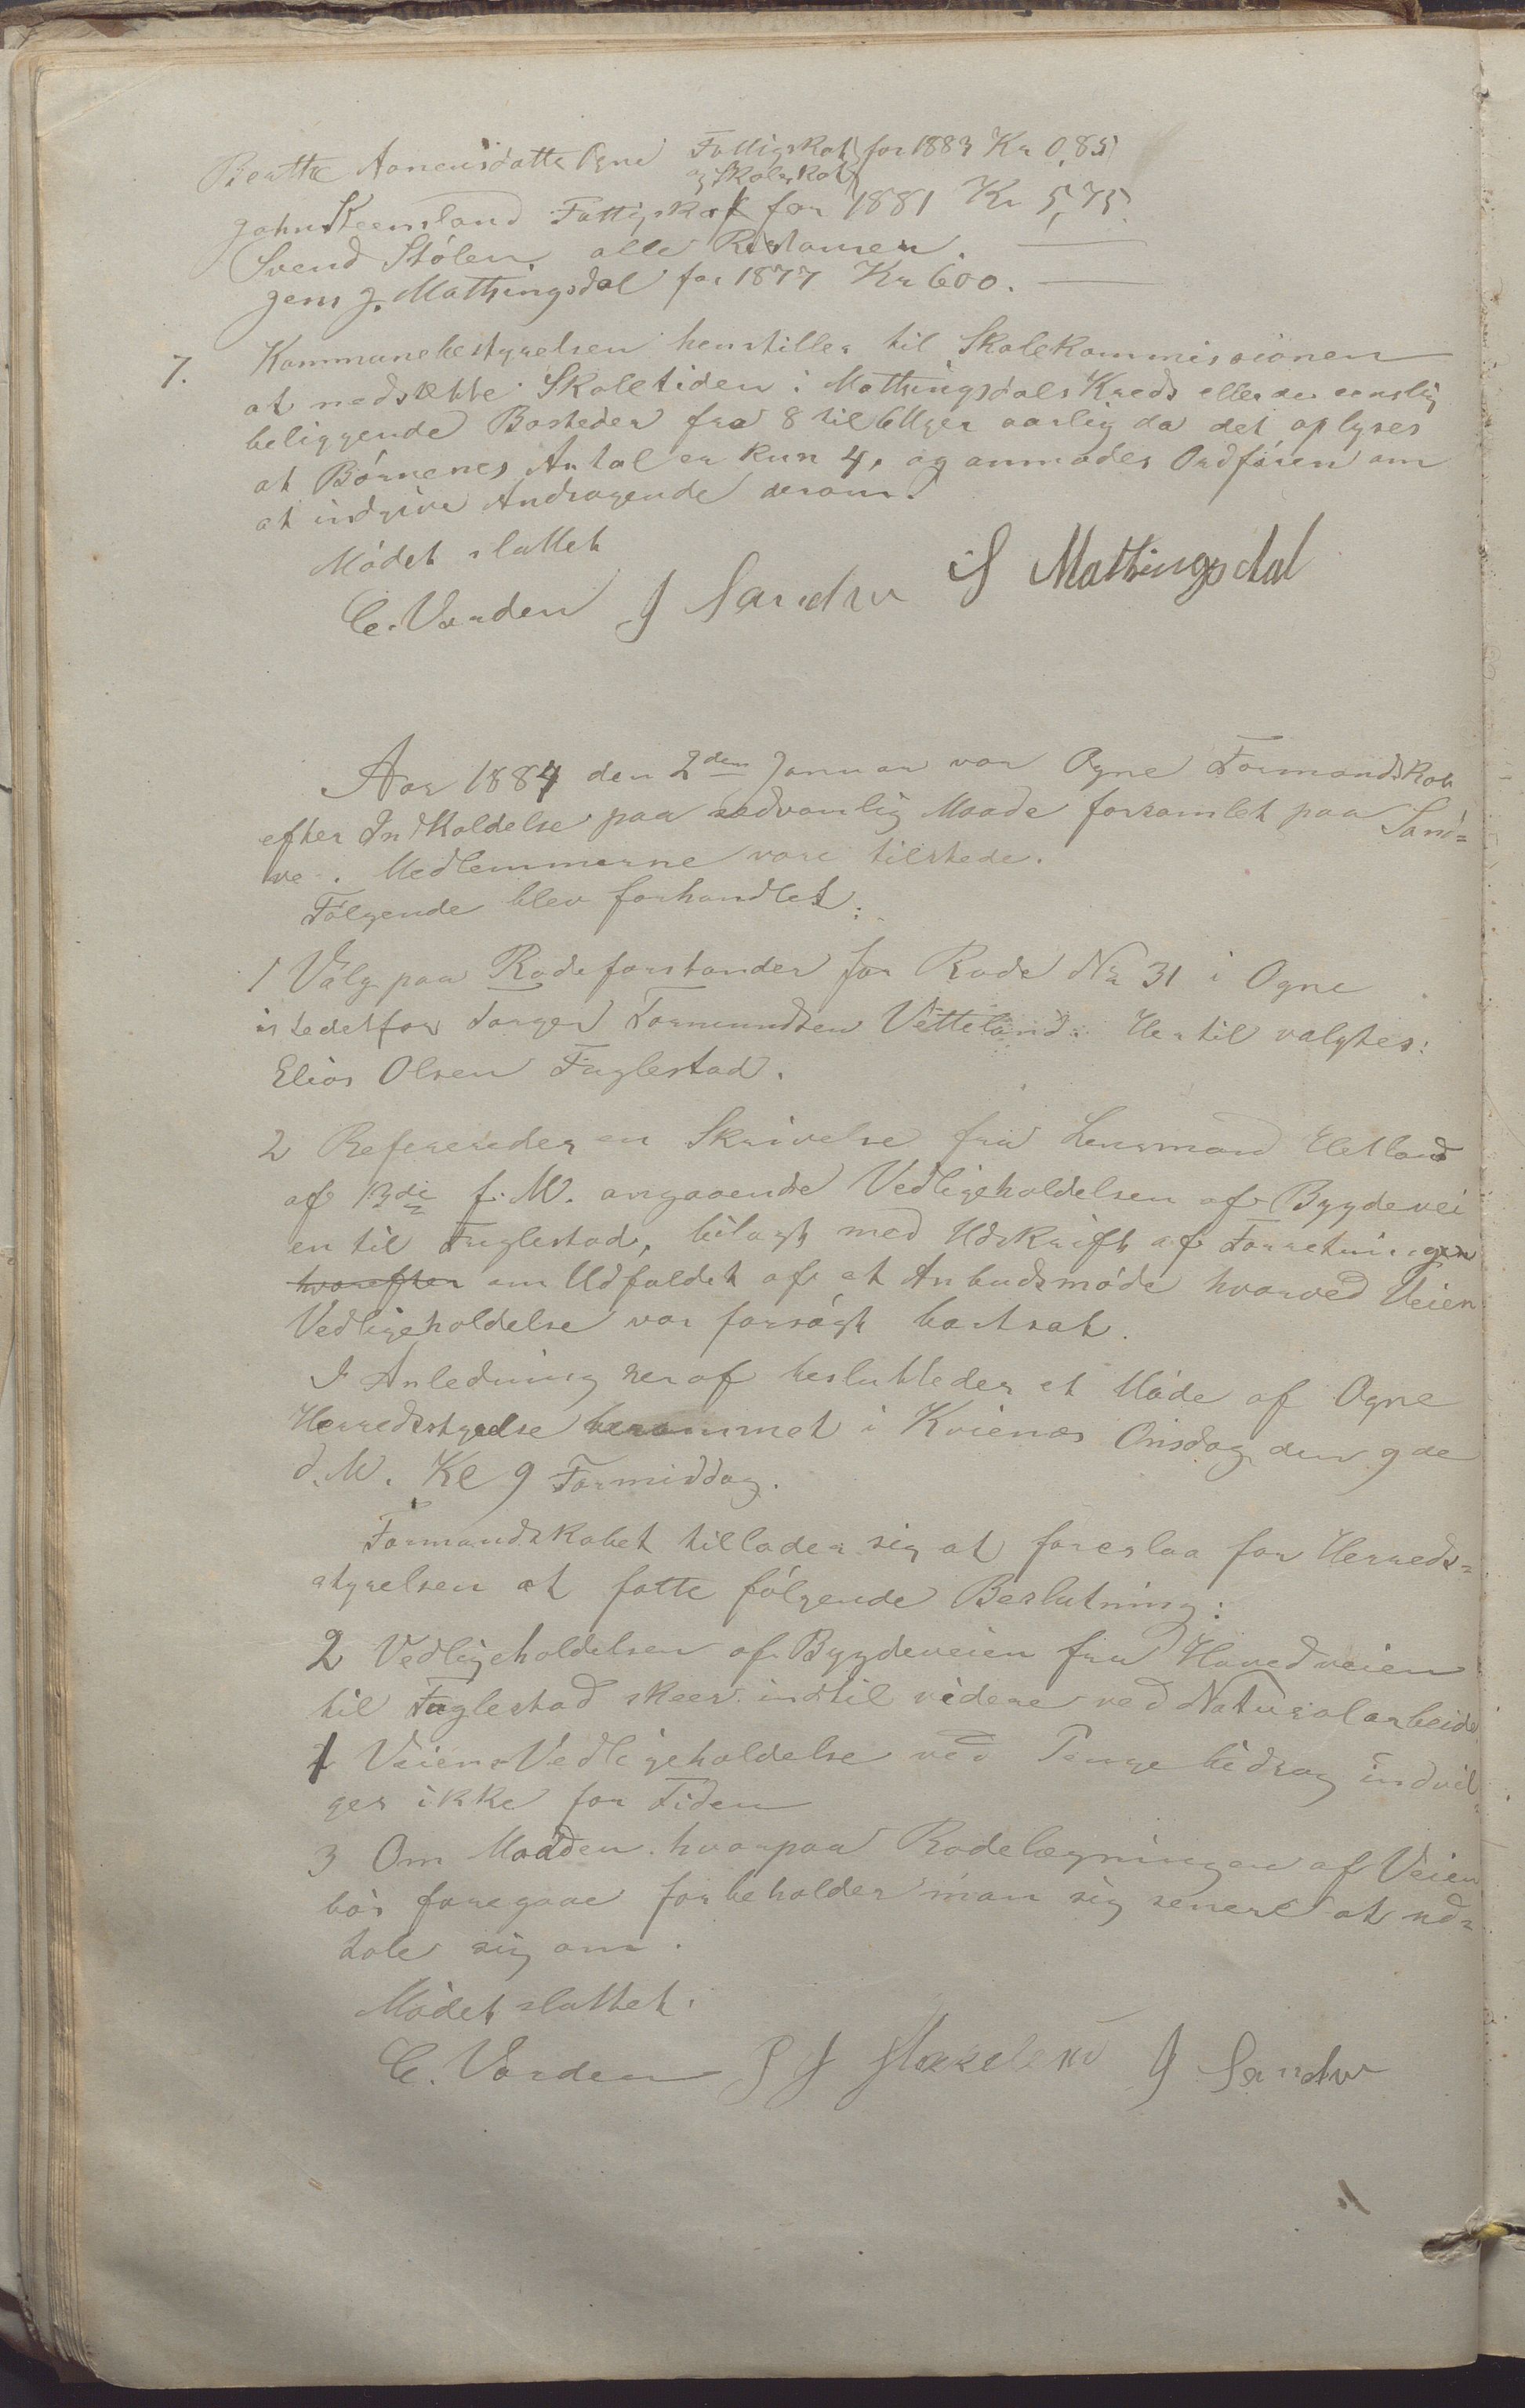 Beatte Aanensdatter Ogne Fattigskat for 1883 Kr 0,85
og Skoleskat
John Steensland Fattigskat for 1881 Kr 5,75.
Svend Stølen alle Restancer.
Jens J. Mathingsdal for 1877 Kr 600.
7. Kommunebestyrelsen henstiller til Skolekommissionen
at nedsætte Skoletiden i Mathingsdals Kreds eller de eenslig
beliggende Bosteder fra 8 til 6 Uger aarlig da det oplyses
at Børnenes Antal er kun 4, og anmodes Ordføren om
at indgive Andragende derom.
Mødet sluttet
C. Varden J Sandve S Mathingsdal
Aar 1884 den 2den Januar var Ogne Formandskab
efter Indkaldelse paa sedvanlig Maade forsamlet paa Sand=
ve. Medlemmerne vare tilstede.
Følgende blev forhandlet:
1 Valg paa Rodeforstander for Rode Nr 31 i Ogne
istedetfor Torger Tormundsen Vetteland. Hertil valgtes:
Elias Olsen Fuglestad.
2 Refereredes en Skrivelse fra Lensmand Hetland
af 13de f. M. angaaende Vedligeholdelsen af Bygdevei
en til Fuglestad, bilagt med Udskrift af Forretningen
hvorefter om Udfaldet af et Anbudsmøde hvorved Veiens
Vedligeholdelse var forsøgt bortsat.
I Anledning heraf besluttedes et Møde af Ogne
Herredsstyrelse berammet i Kvienes Onsdag den 9de
d. M. Kl 9 Formiddag.
Formandskabet tillader sig at foreslaa for Herreds=
styrelsen at fatte følgende Beslutning:
2 Vedligeholdelsen af Bygdeveien fra Hovedveien
til Fuglestad skeer indtil videre ved Naturalarbeide
1 Veiens Vedligeholdelse ved Penge bidrag indvil=
ges ikke for Tiden
3 Om Maaden hvorpaa Rodelægningen af Veien
bør foregaae forbeholder man sig senere at ud=
tale sig om.
Mødet sluttet.
C. Varden S J J Sandve